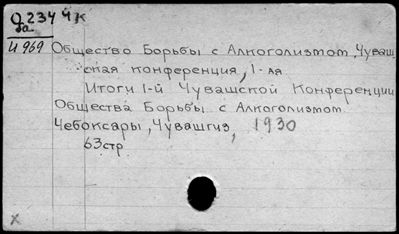 Q 234 ЧК
За.
И 969 Общество Борьбы с Алкоголизмом, Чуваш
ская конференция, 1-ая
Итоги 1-й Чувашской Конференции
Общества Борьбы с Алкоголизмом
Чебоксары, Чувашгиз, 1930
63стр
x